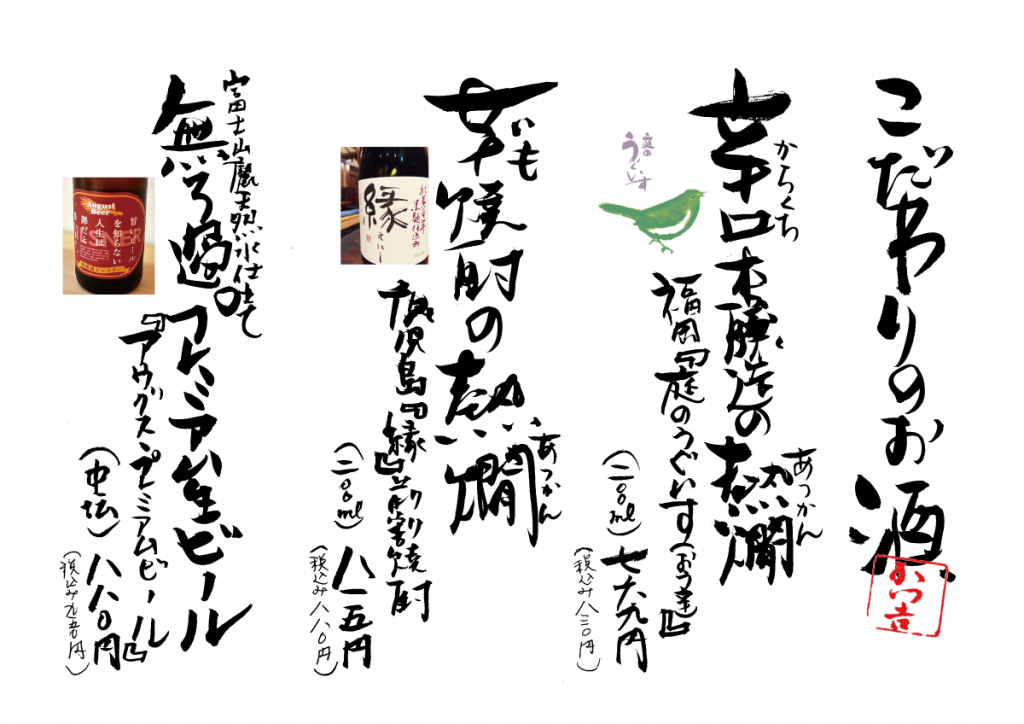 こだわりのお酒
からくち
辛口本醸造の熱燗
あつかん
福岡『庭のうぐいす
(二〇〇ml) 七六九円
(税込み八三〇円)
庭の
うぐいす
いも
芋焼酎の熱燗
あつかん
鹿児島『縁』前割り焼酎
(二〇〇ml) 八一五円
(税込み八八〇円)
縁
えにし
黒麹仕込み
富士山麓天然水仕立て
無ろ過のプレミア生ビール
『アウグスプレミアムビール』
八八〇円
(税込み九五〇円)
August
Beer
ビール
を知らない
人生は